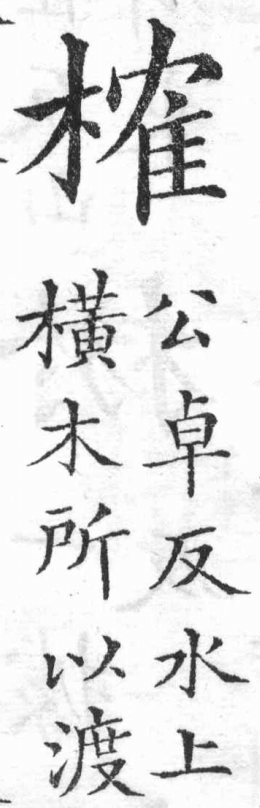 榷
公卓反水上
横木所以渡